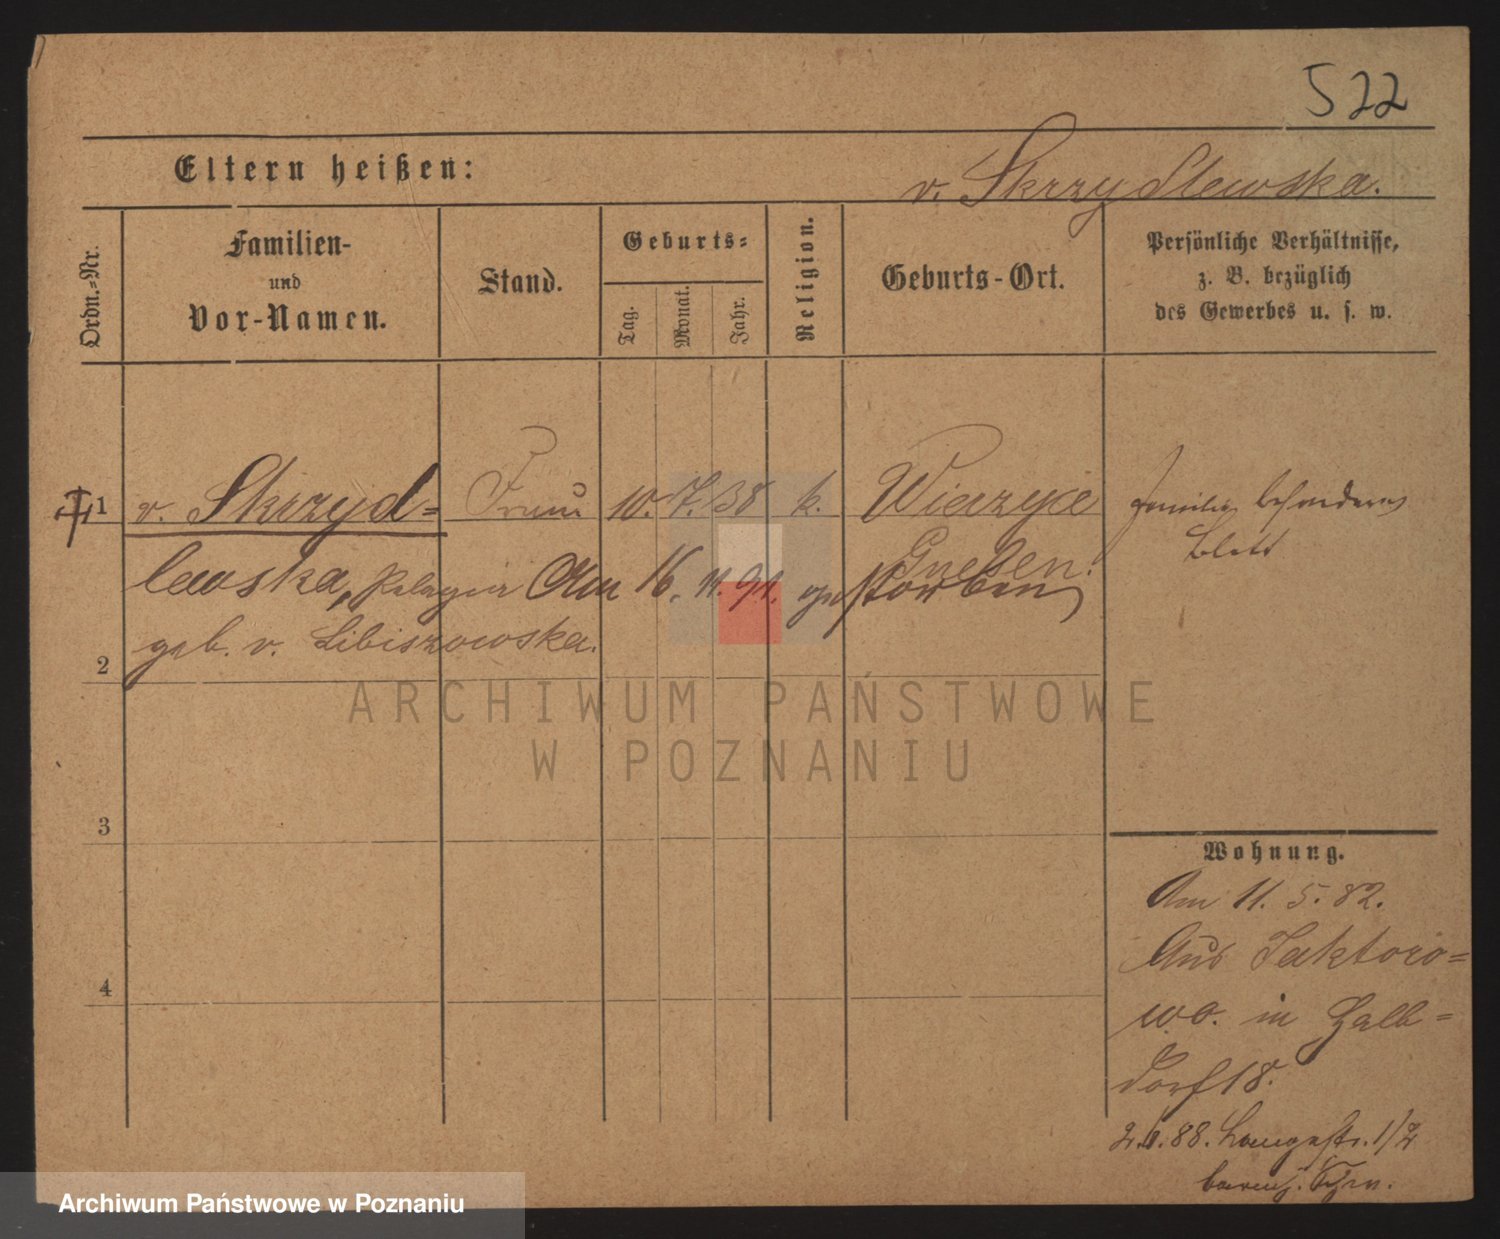 522
Eltern heißen:
v. Skrzydlewska.
Ordn.-Nr.
Familien-
und
Vor-Namen.
Stand.
Geburts-
Tag.
Monat.
Jahr.
Religion.
Geburts-Ort.
Persönliche Verhältnisse,
z. B. bezüglich
des Gewerbes u. s. w.
1 v. Skrzyd= Frau 10. 7. 38 k. Wierzyce
Gnesen.
Familie besonderes
Blatt
lewska, Pelagia Am 16. 11. 91. gestorben
geb. v. Libiszowska.
2
ARCHIWUM PAŃSTWOWE
W POZNANIU
3
4
Wohnung.
Am 11. 5. 82.
Aus Jaktoro=
wo. in Halb=
dorf 18.
88. Langestr. 1/2
Archiwum Państwowe w Poznaniu